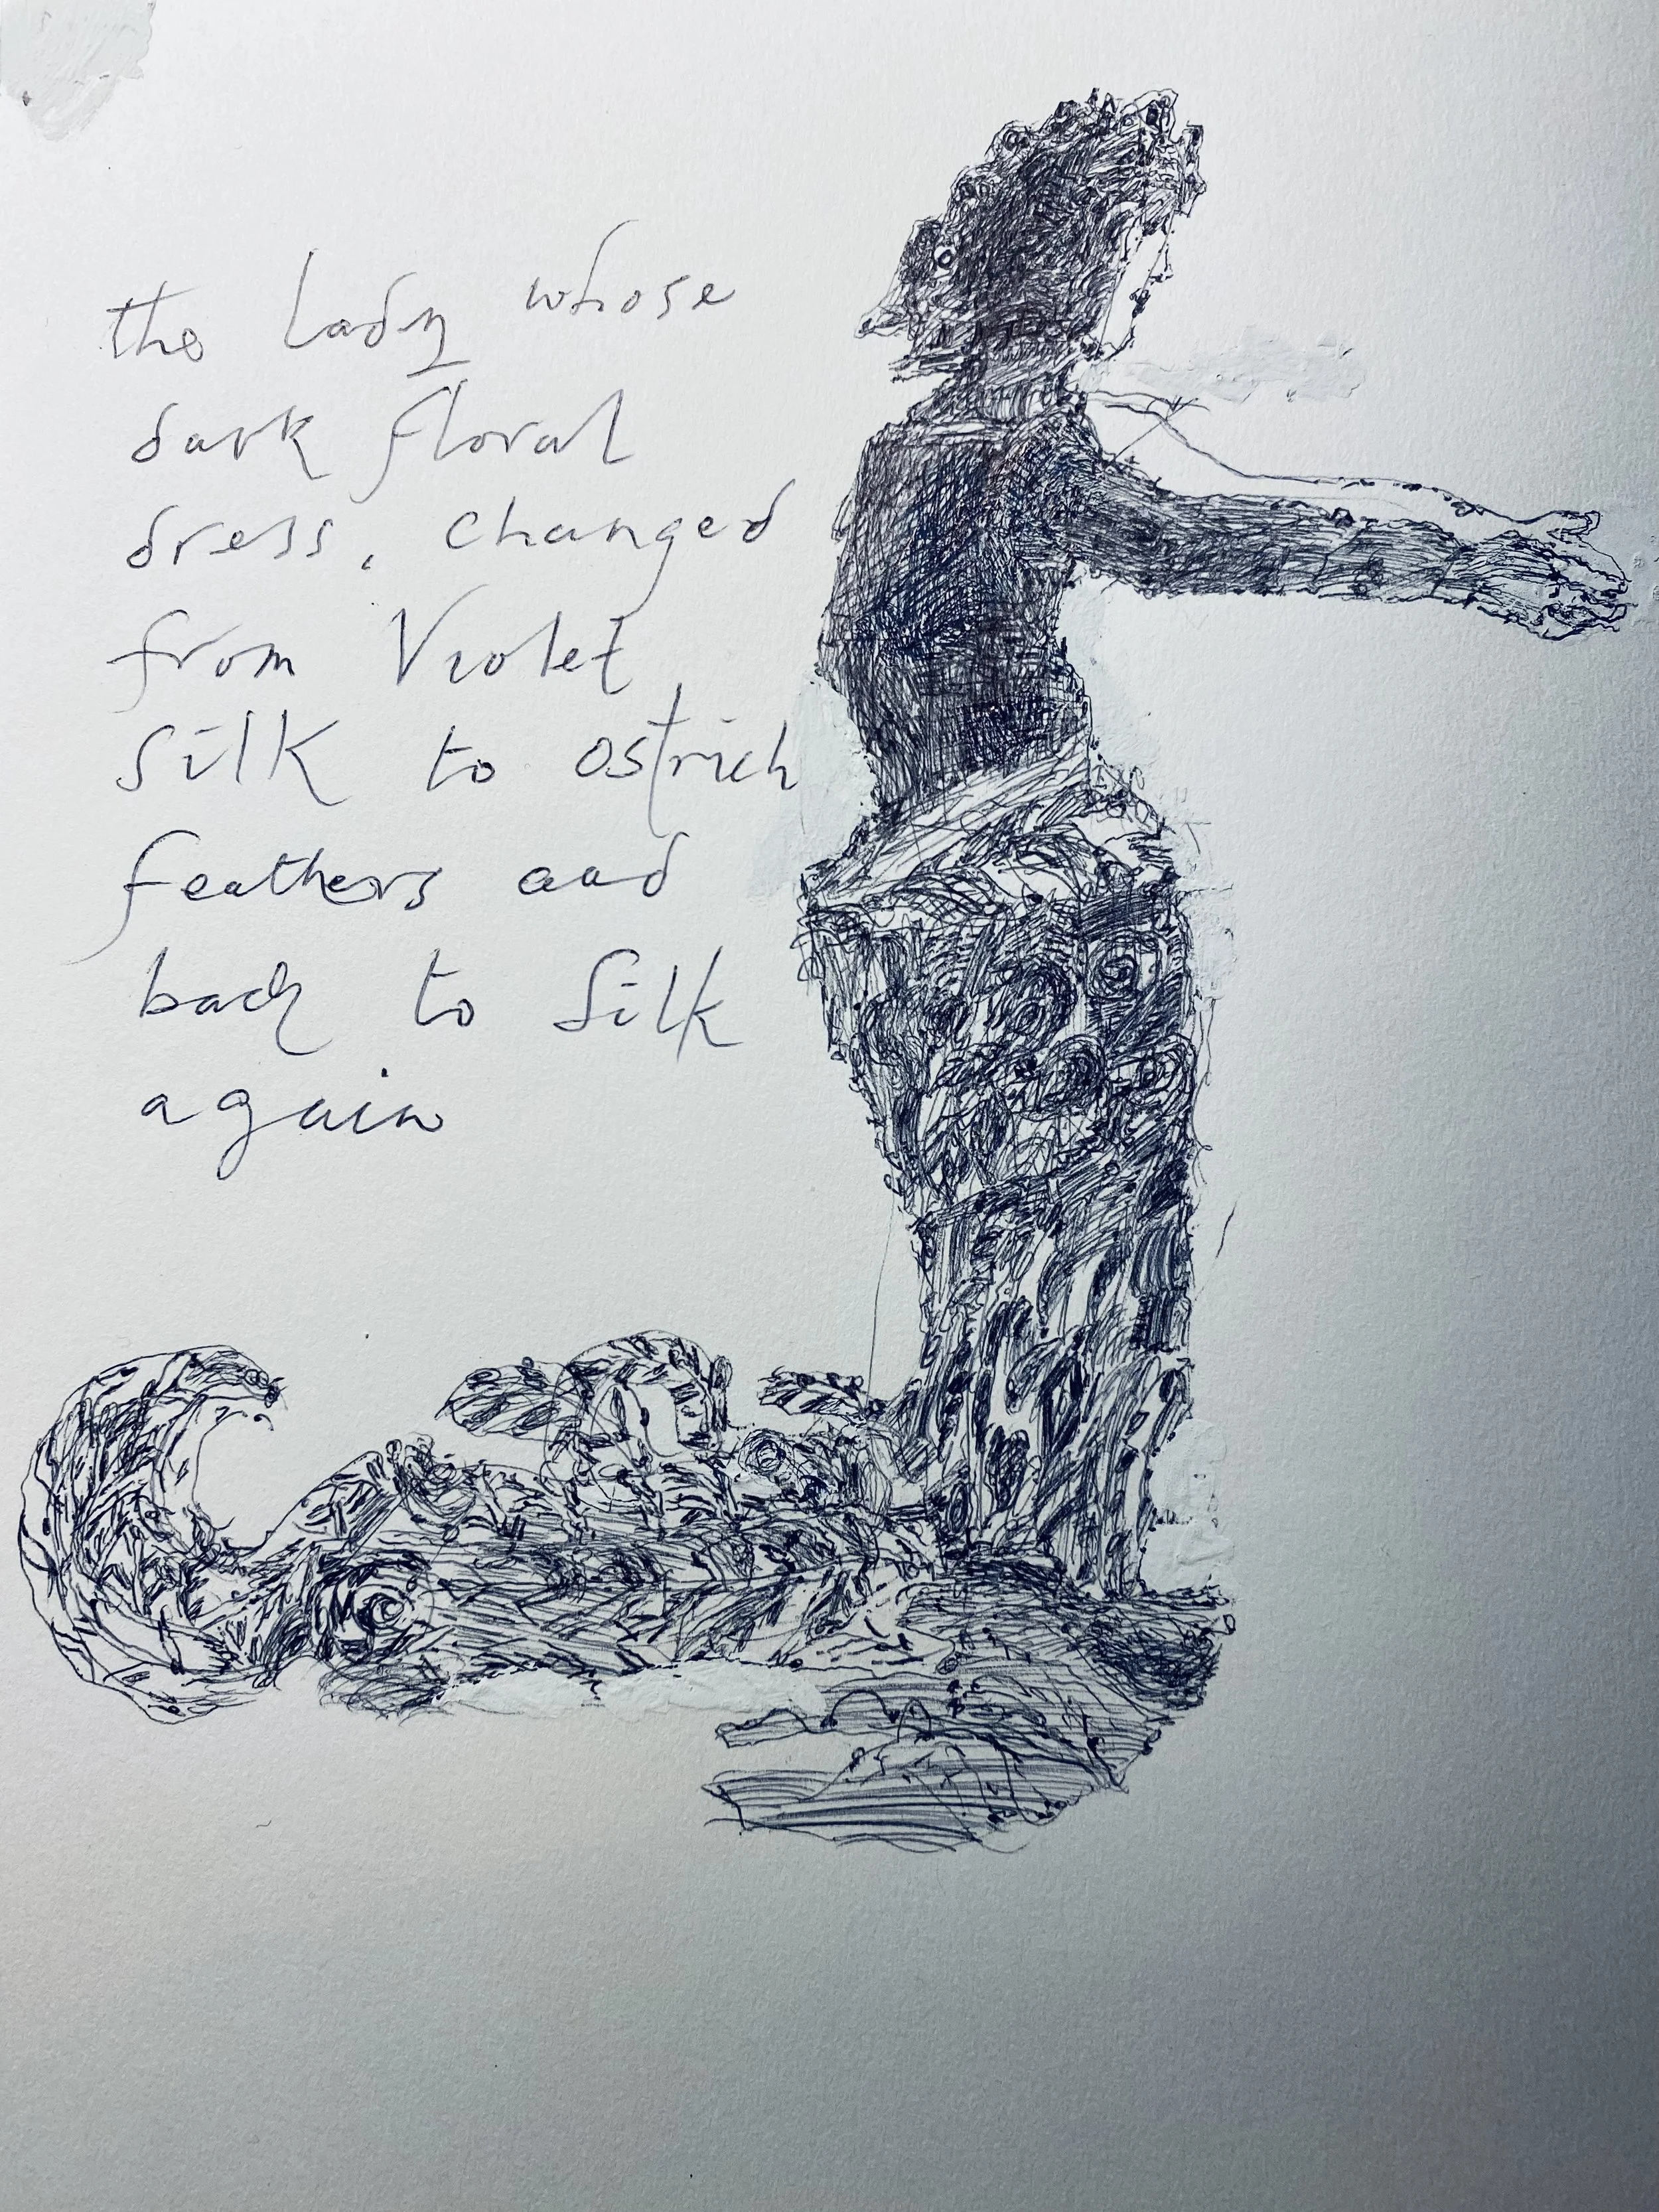 the lady whose
dark floral
dress, changed
from Violet
Silk to ostrich
feathers and
back to Silk
again